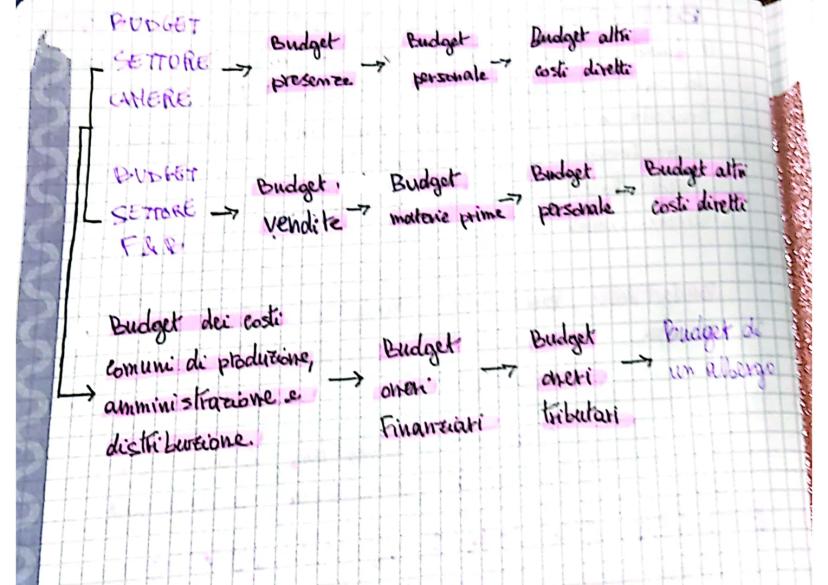 BUDGET
SETTORE
CAMERE
→ Budget
presenze
→ Budget
personale
→ Budget altri
costi diretti
BUDGET
SETTORE
F&B.
→ Budget
vendite
→ Budget
materie prime
→ Budget
personale
→ Budget altri
costi diretti
Budget dei costi
comuni di produzione,
amministrazione e
distribuzione.
→ Budget
oneri
finanziari
→ Budget
oneri
tributari
→ Budget di
un albergo